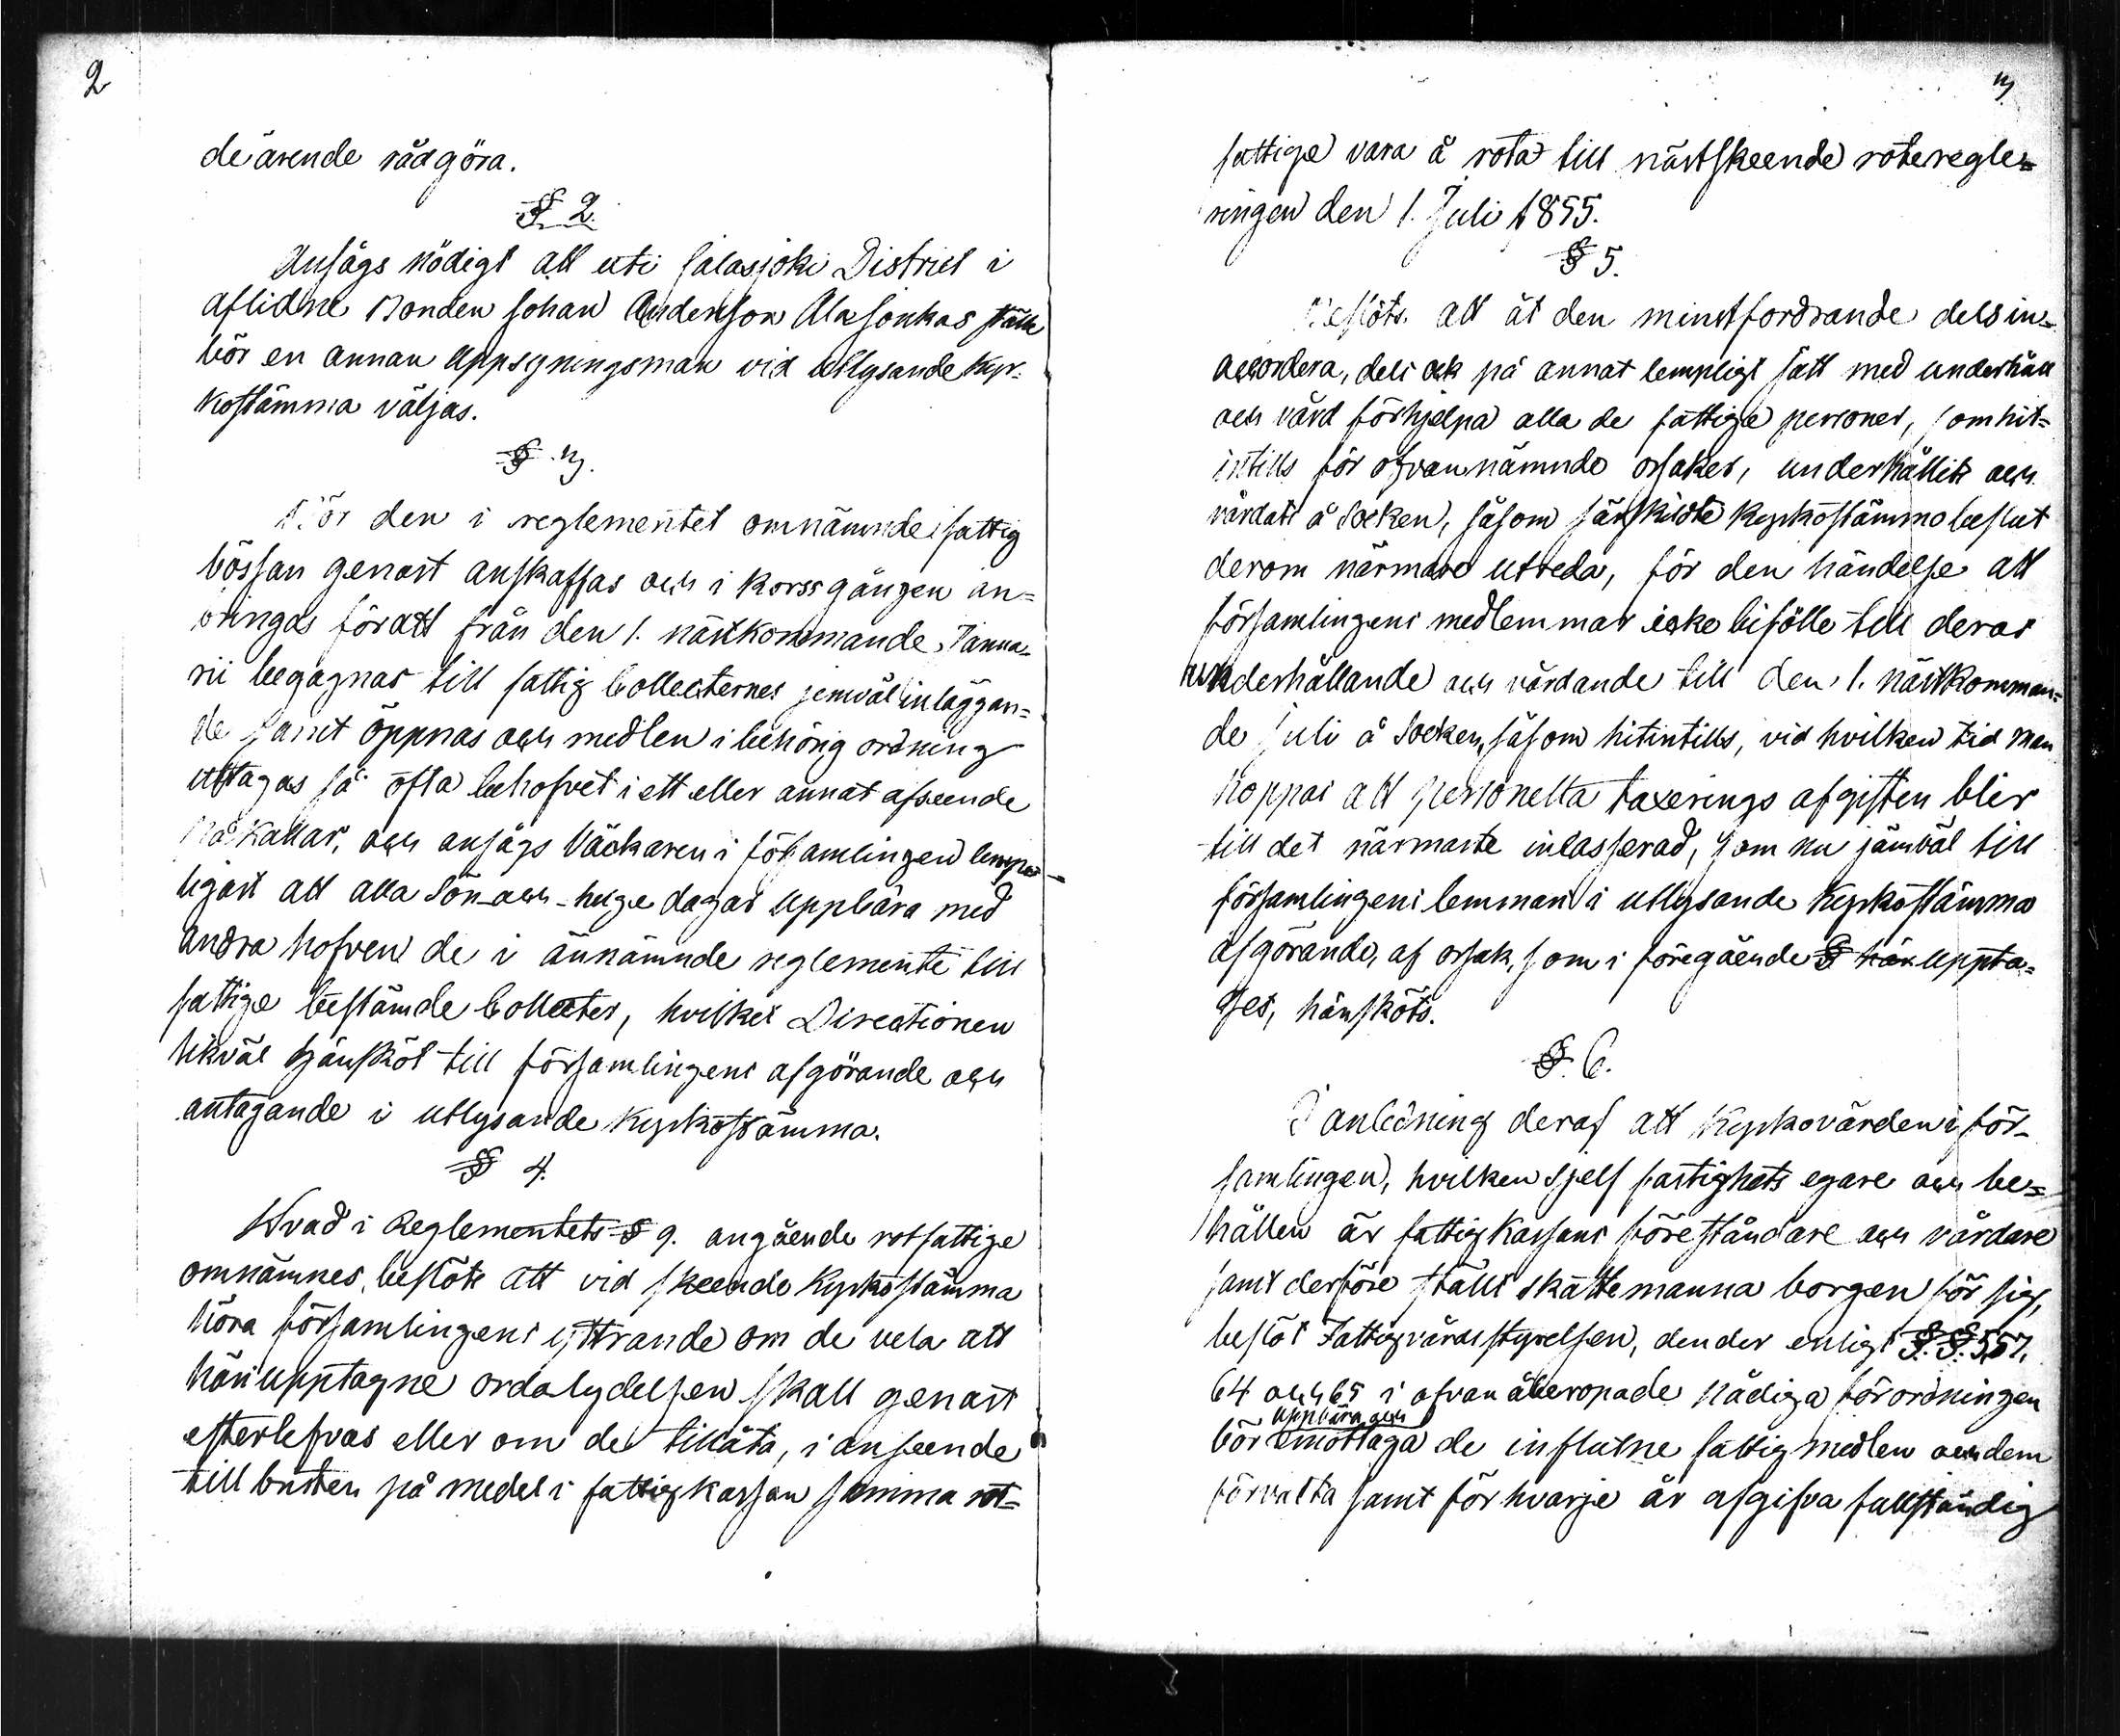 2
de ärende rådgöra.
§ 2.
Ansågs nödigt att uti Jalasjoki District i
aflidne Bonden Johan Andersson Ala Jonkas ställe
bör en annan uppsyningsman vid utlysande kyr-
kostämma väljas.
§ 3.
Bör den i reglementet omnämnde fattig
bössan genast anskaffas och i korssgången an=
bringas för att från den 1. nästkommande Janua-
rii begagnas till fattig Collecternes jemväl inläggan=
de samt öppnas och medlen i behörig ordning
uttagas så ofta behofvet i ett eller annat afseende
påkallar, och ansågs Väckaren i församlingen lempe-
ligast att alla Sön- och helge dagar uppbära med
andra hofven de i ännämnde reglemente till
fattige bestämde Collecter, hvilket Directionen
likväl hänsköt till församlingens afgörande och
antagande i utlysande kyrkostämma.
§ 4.
Hvad i Reglementets § 9. angående rotfattige
omnämnes, beslöts att vid skeende kyrkostämma
höra församlingens yttrande om de vela att
häri upptagne ordalydelsen skall genast
efterlefvas eller om de tillåta, i anseende
till bristen på medel i fattigkassan samma rot=
3
fattige vara å rota till nästskeende roteregle=
ringen den 1. Juli 1855.
§ 5.
Beslöts att åt den minstfordrande dels in-
accordera, dels ock på annat lempligt sätt med underhåll
och vård förhjelpa alla de fattige personer, som hit=
intills för ofvannämnde orsaker, underhållits och
vårdats å Socken, såsom särskildte kyrkostämmo beslut
derom närmare utreda, för den händelse att
församlingens medlemmar icke bifölle till deras
underhållande och vårdande till den 1. nästkomman=
de Juli å Socken, såsom hitintills, vid hvilken tid man
hoppas att personella taxerings afgiften blir
till det närmaste inlasserad, som nu jämväl till
församlingens lemmars i utlysande kyrkostämma
afgörande, af orsak, som i föregående § här uppta=
ges, hänsköts.
§. 6.
I anledning deraf att kyrkovärden i för-
samlingen, hvilken sjelf fastighets egare och be=
hållen är fattigkassans föreståndare och vårdare
samt derföre ställt skattemanna borgen för sig,
beslöt Fattigvårdsstyrelsen, den der enligt §. §. 5, 57,
64 och 65 i ofvan åberopade nådiga förordningen
uppbära och
bör emottaga de influtne fattig medlen och dem
förvalta samt för hvarje år afgifva fullständig